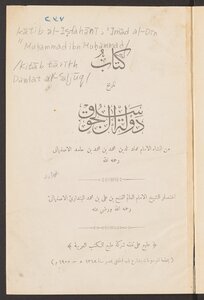 kātib al-Iṣfahānī, 'Imād al-Dīn
Muḥammad ibn Muḥammad /
/Kitāb tārīkh
Dawlat al-Saljūq/
كتاب
تاريخ
دولة آل سلجوق
من إنشاء الامام عماد الدين محمد بن محمد بن حامد الاصفهانى
رحمه الله
اختصار الشيخ الامام العالم الفتح بن على بن محمد البندارى الاصفهانى
رحمه الله ورضى عنه
طبع على نفقة شركة طبع الكتب العربية